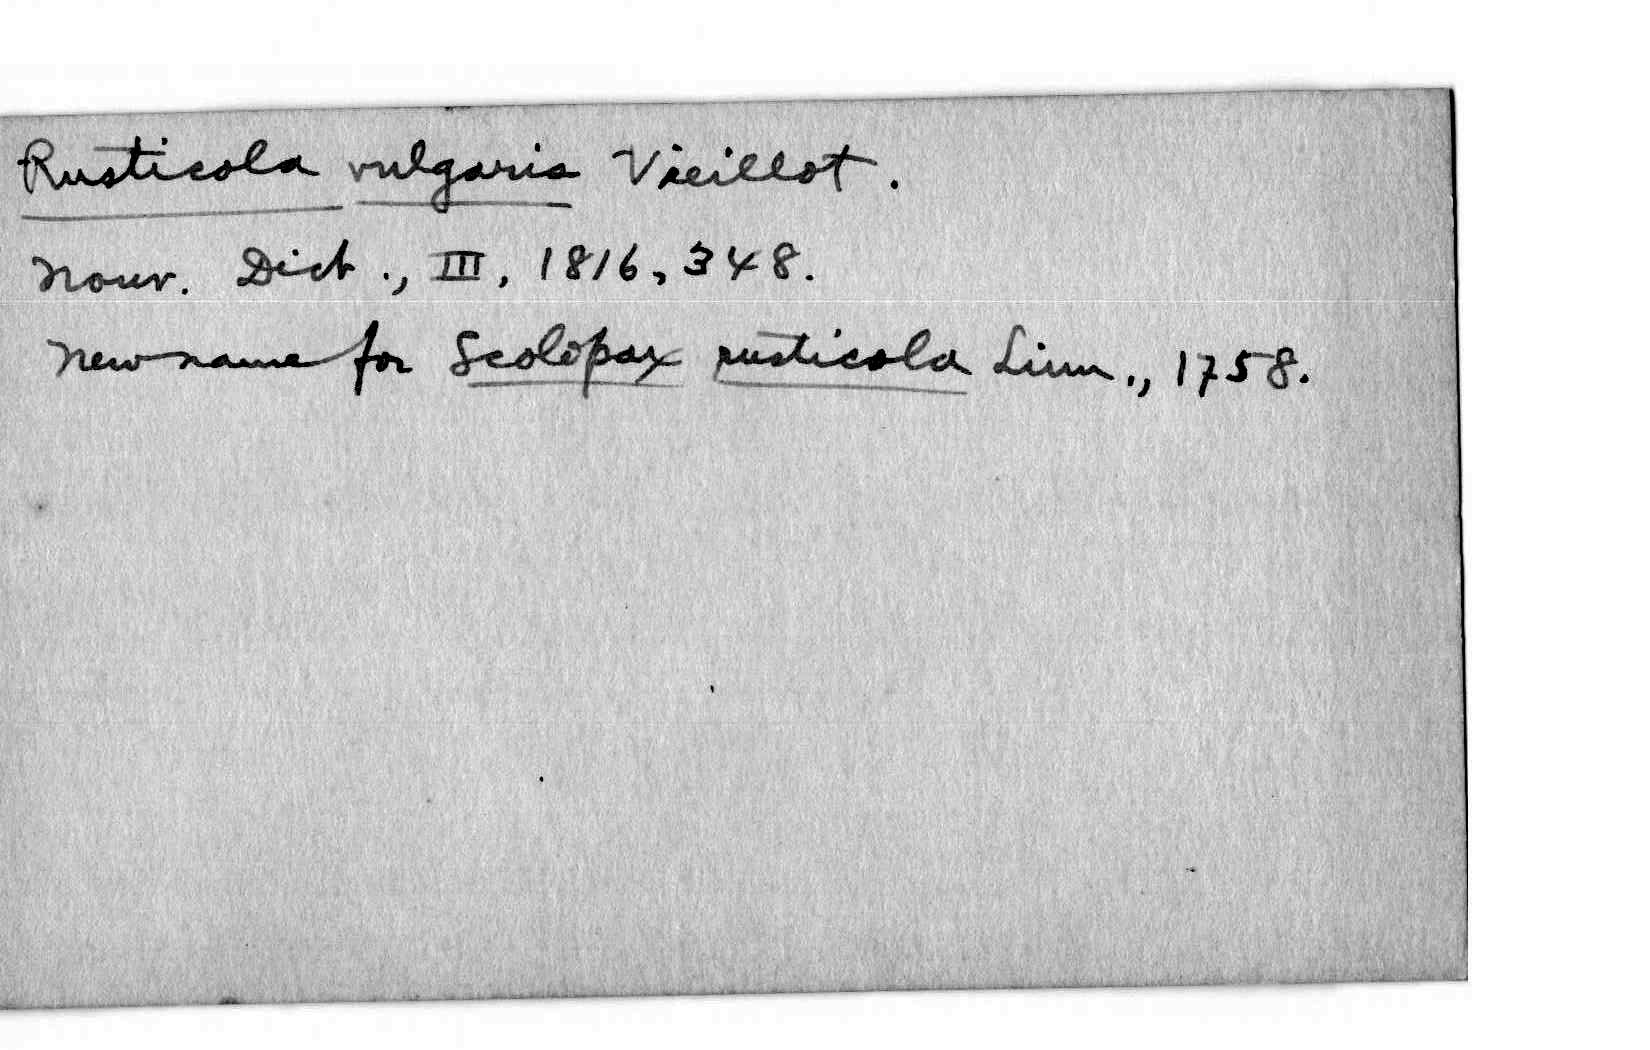 Rusticola vulgaris Vieillot.
Nouv. Dict., III, 1816, 348.
New name for Scolopax rusticola Linn., 1758.